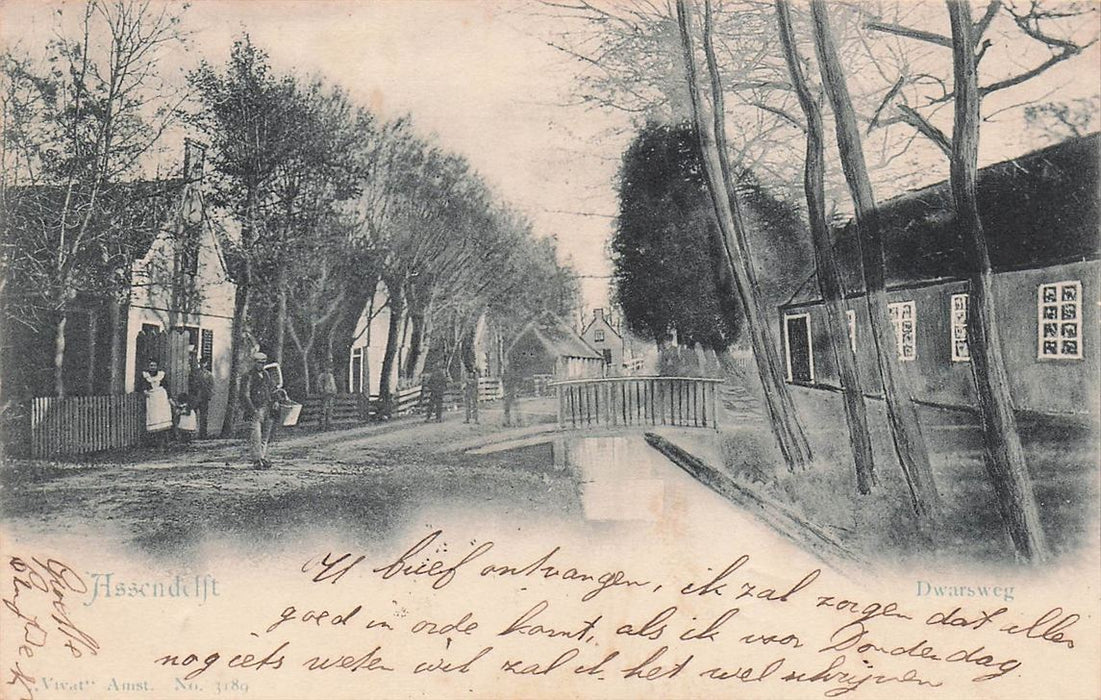 Assendelft
Dwarsweg
Uw brief ontvangen, ik zal zorgen dat alles
goed in orde komt, als ik voor Donderdag
nog iets weten wil zal ik het wel schrijven
"Vivat" Amst. No. 3189